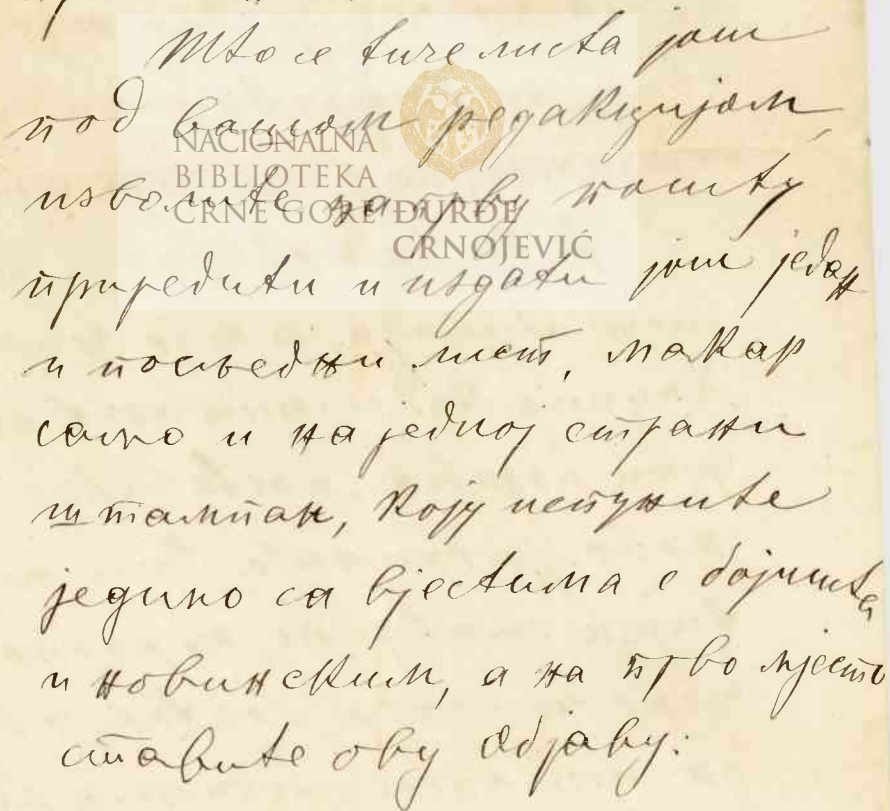 Што се тиче листа још
под вашом редакцијом,
изволите на прву пошту
приредити и издати још један
и посљедњи лист, макар
само и на једној страни
штампан, коју испуните
једино са вјестима с бојишта
и новинским, а на прво мјесто
ставите ову објаву:
NACIONALNA
BIBLIOTEKA
CRNE GORE ĐURĐE
CRNOJEVIĆ